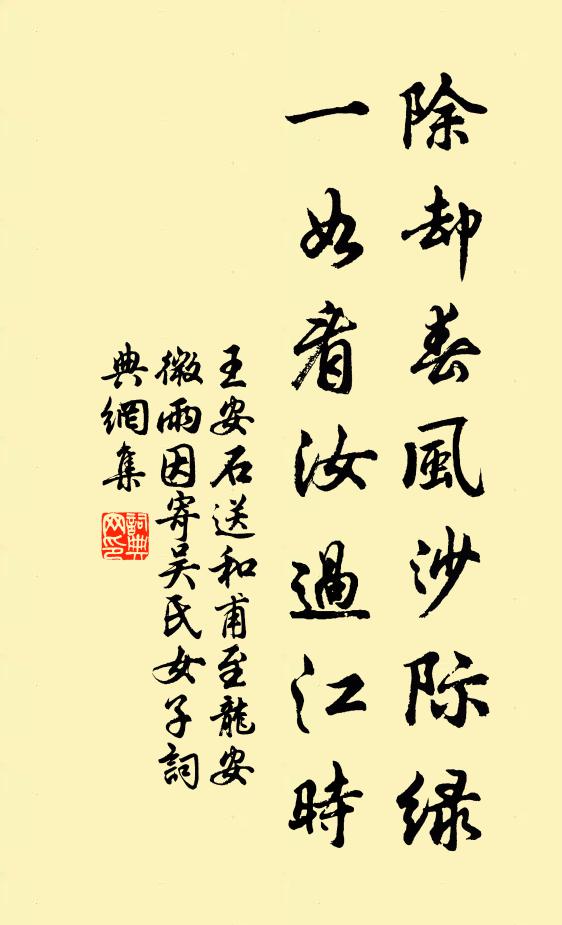 除却春風沙际绿
一如看汝過江時
王安石送和甫至龍安
微雨因寄吴氏女子詞
典網集
詞典網印